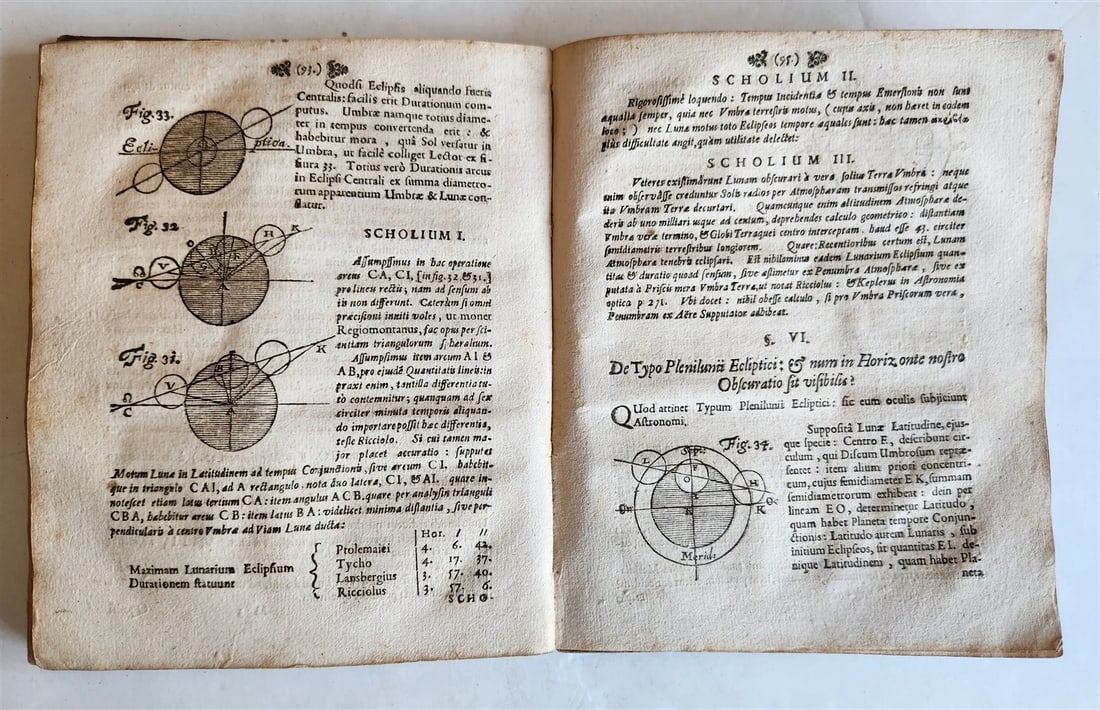 (93.)
Fig. 33.
Ecli-
ptica.
Quodsi Eclipsis aliquando fuerit
Centralis: facilis erit Durationum com-
putus. Umbræ namque totius diame-
ter in tempus convertenda erit: &
habebitur mora, quâ Sol versatur in
Umbra, ut facilè colliget Lector ex fi-
gura 33. Totius verò Durationis arcus
in Eclipsi Centrali ex summa diametro-
rum apparentium Umbræ & Lunæ con-
flatur.
Fig. 32
H K
V
SCHOLIUM I.
Assumpsimus in hac operatione
arcus CA, CI, [in fig. 32. & 31.]
pro lineis rectis, nam ad sensum ab
iis non differunt. Cæterùm si omni
præcisioni inniti voles, ut monet
Regiomontanus, sac opus per sci-
entiam triangulorum sphæralium.
Assumpsimus item arcum A I &
A B, pro ejusdē Quantitatis lineis: in
praxi enim, tantilla differentia tu-
tò contemnitur; quanquam ad sex
circiter minuta temporis aliquan-
do importare possit hæc differentia,
teste Ricciolo. Si cui tamen ma-
jor placet accuratio: supputet
Fig. 31
K
V
A
Motum Lunæ in Latitudinem ad tempus Conjunctionis, sive arcum C I. habebit-
que in triangulo C A I, ad A rectangulo, nota duo latera, C I, & A I. quare in-
notescet etiam latus tertium C A: item angulus A C B, quare per analysin trianguli
C B A, habebitur arcus C B: item latus B A: videlicet minima distantia, sive per-
pendicularis à centro Umbræ ad Viam Lunæ ducta:
Hor. / //
Maximam Lunarium Eclipsium
Durationem statuunt
Ptolemaiei 4. 6. 42.
Tycho 4. 17. 37.
Lansbergius 3. 57. 40.
Ricciolus 3. 57. 6.
SCHO-
(95.)
SCHOLIUM II.
Rigorosissimè loquendo: Tempus Incidentiæ & tempus Emersionis non sunt
æqualia semper, quia nec Vmbra terrestris motus, (cujus axis, non hæret in eodem
loco;) nec Lunæ motus toto Eclipseos tempore æquales sunt: hæc tamen
plus difficultate angit, quàm utilitate delectet:
SCHOLIUM III.
Veteres existimârunt Lunam obscurari à verâ solius Terræ Vmbrâ: neque
enim observâsse creduntur Solis radios per Atmosphæram transmissos refringi atque
ita Vmbram Terræ decurtari. Quamcunque enim altitudinem Atmosphæræ de-
deris ab uno milliari usque ad centum, deprehendes calculo geometrico: distantiam
Vmbræ veræ termino, & Globi Terraquei centro interceptam, haud esse 43. circiter
semidiametris terrestribus longiorem. Quare: Recentioribus certum est, Lunam
Atmosphæræ tenebris eclipsari. Est nihilominus eadem Lunarium Eclipsium quan-
titas & duratio quoad sensum, sive æstimetur ex Penumbra Atmosphæræ, sive ex
putata à Priscis mera Vmbra Terræ, ut notat Ricciolus: & Keplerus in Astronomia
optica p 271. Vbi docet: nihil obesse calculo, si pro Vmbra Priscorum vera,
Penumbram ex Aëre Supputator adhibeat.
§. VI.
De Typo Plenilunii Ecliptici: & num in Horizonte nostro
Obscuratio sit visibilis?
QUod attinet Typum Plenilunii Ecliptici: sic eum oculis subjiciunt
Astronomi.
Fig. 34.
Sept:
L
F
O
H
E
K
Merid:
Suppositâ Lunæ Latitudine, ejus-
que specie: Centro E, describunt cir-
culum, qui Discum Umbrosum repræ-
sentet: item alium priori concentri-
cum, cujus semidiameter E K, summam
semidiametrorum exhibeat: dein per
lineam EO, determinetur Latitudo,
quam habet Planeta tempore Conjun-
ctionis: Latitudo autem Lunaris, sub
initium Eclipseos, sit quantitas E I. de-
nique Latitudinem, quam habet Pla-
neta